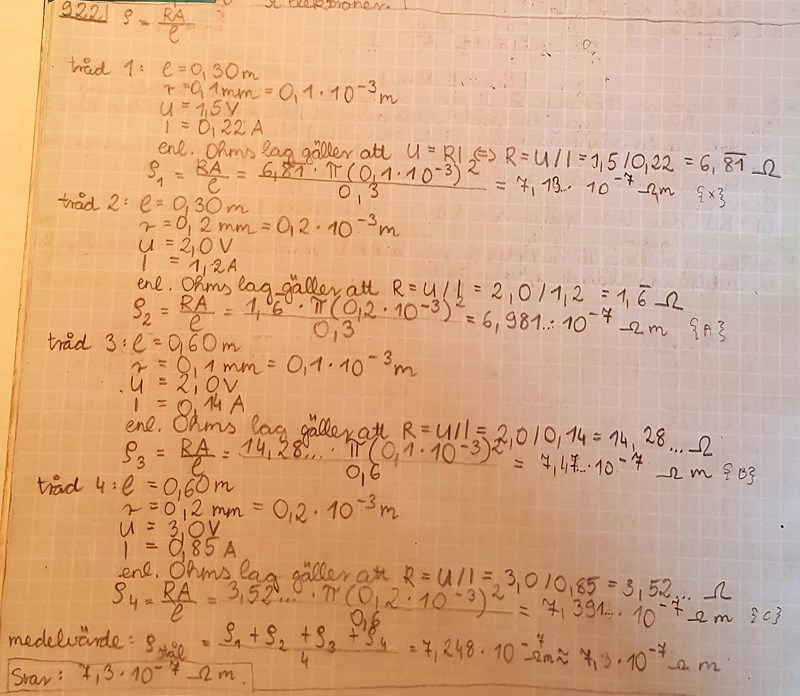 si elektroner.
922 ρ = RA/l
tråd 1: l = 0,30 m
r = 0,1 mm = 0,1 · 10⁻³ m
U = 1,5 V
I = 0,22 A
enl. Ohms lag gäller att U = RI ⇔ R = U/I = 1,5/0,22 = 6,8̅1̅ Ω
ρ₁ = RA/l = 6,8̅1̅ · π(0,1·10⁻³)²/0,3 = 7,13... · 10⁻⁷ Ωm {x}
tråd 2: l = 0,30 m
r = 0,2 mm = 0,2 · 10⁻³ m
U = 2,0 V
I = 1,2 A
enl. Ohms lag gäller att R = U/I = 2,0/1,2 = 1,6̅ Ω
ρ₂ = RA/l = 1,6̅ · π(0,2·10⁻³)²/0,3 = 6,981... · 10⁻⁷ Ω m {A}
tråd 3: l = 0,60 m
r = 0,1 mm = 0,1 · 10⁻³ m
U = 2,0 V
I = 0,14 A
enl. Ohms lag gäller att R = U/I = 2,0/0,14 = 14,28... Ω
ρ₃ = RA/l = 14,28... · π(0,1·10⁻³)²/0,6 = 7,47... · 10⁻⁷ Ω m {B}
tråd 4: l = 0,60 m
r = 0,2 mm = 0,2 · 10⁻³ m
U = 3,0 V
I = 0,85 A
enl. Ohms lag gäller att R = U/I = 3,0/0,85 = 3,52... Ω
ρ₄ = RA/l = 3,52... · π(0,2·10⁻³)²/0,6 = 7,391... · 10⁻⁷ Ω m {C}
medelvärde: ρstål = ρ₁ + ρ₂ + ρ₃ + ρ₄/4 = 7,248 · 10⁻⁷ Ωm ≈ 7,3 · 10⁻⁷ Ω m
Svar: 7,3 · 10⁻⁷ Ω m.